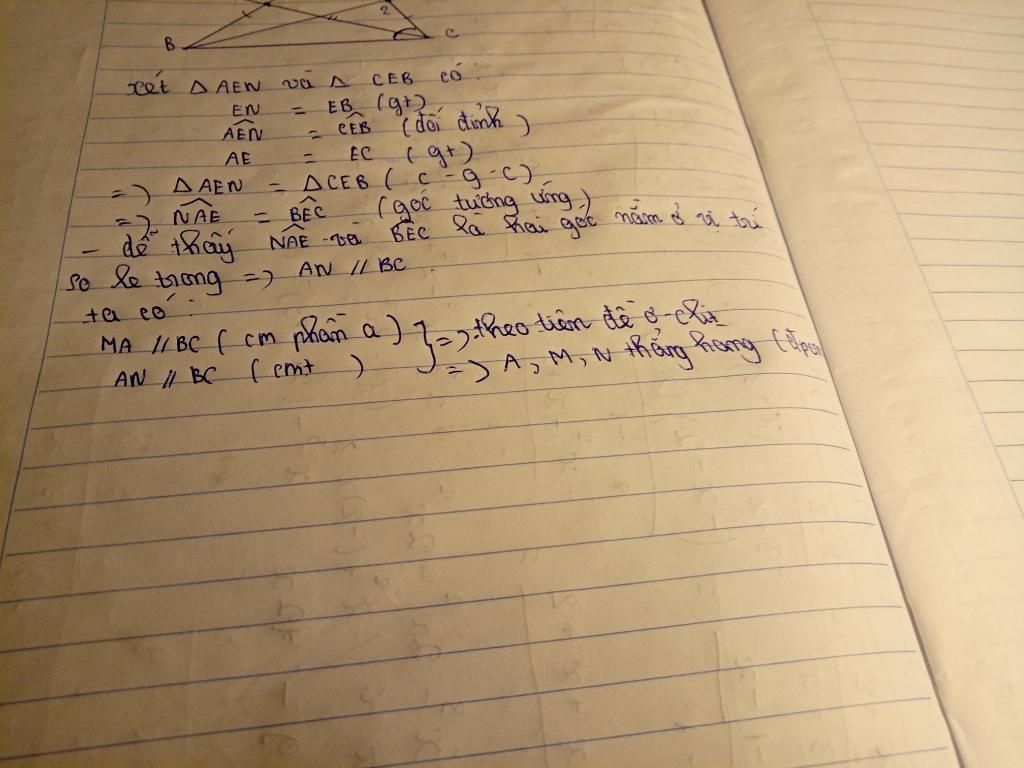 2
B C
xét △ AEN và △ CEB có :
EN = EB (gt)
AEN = CEB (đối đỉnh)
AE = EC (gt)
=> △ AEN = △ CEB (c - g - c)
=> NAE = BEC (góc tương ứng)
- dễ thấy NAE và BEC là hai góc nằm ở vị trí
so le trong => AN // BC
ta có :
MA // BC (cm phần a) } => theo tiên đề ơ-clit
AN // BC (cmt) => A, M, N thẳng hàng